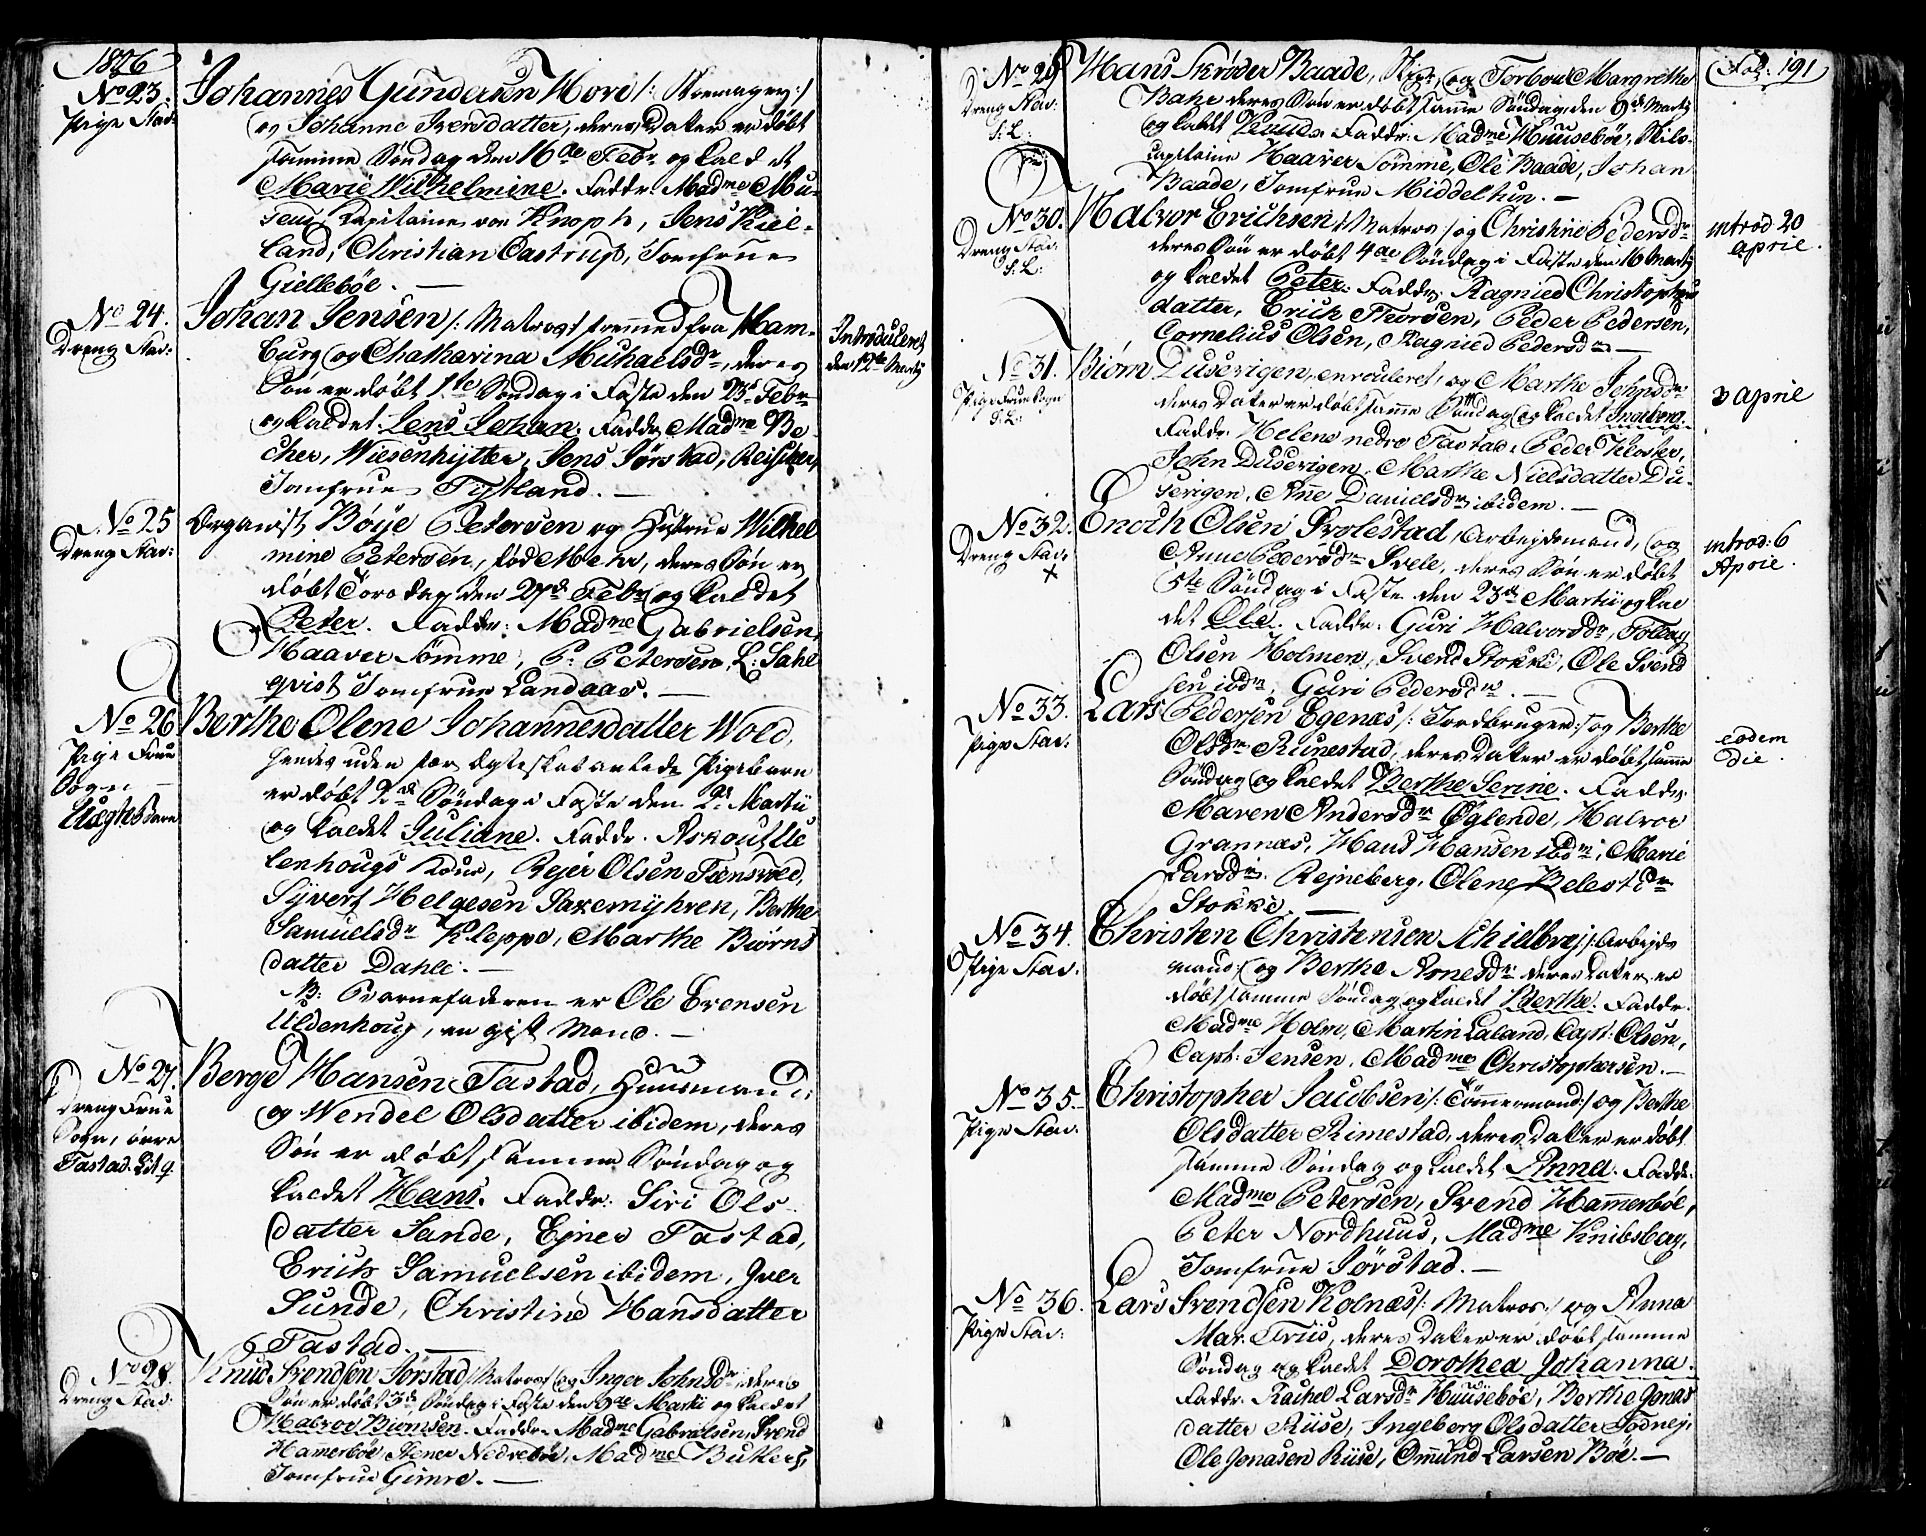 1806
No 23.
Pige Stav:
Johannes Gundersen Hove /: Skomager :/
og Johanne Iversdatter, deres Dater er døbt
samme Søndag den 16de Febr. og kaldet
Marie Wilhelmine. Faddr. Madme Mu-
Capitaine von Knoph, Jens Kiel-
land, Christian Castrup, Jomfrue
Giellebøe. —
No 24.
Dreng Stav:
Johan Jensen /: Matros :/ fremmed fra Ham-
burg og Chatharina Michaelsdr, deres
Søn er døbt 1ste Søndag i Faste den 23d Febr.
og kaldet Jens Johan. Faddr. Madme Be-
cher, Wiesenhytter, Jens Jørstad, Reisteer,
Jomfrue Tytland. —
Introduceret
den 12te Martij
No 25
Dreng Stav:
Organist Bøye Petersen og Hustrue Wilhel
mine Petersen, fød Mehn, deres Søn er
døbt Torsdag den 27de Febr. og kaldet
Peter. Faddr: Madme Gabrielsen,
Haaver Sømme, P. Petersen, L: Sahl
qvist Jomfrue Landaas. —
No 26
Pige Frue
Sogn —
Uægte Barn
Berthe Olene Johannesdatter Wold,
hendes uden for Ægteskab avlede Pigebarn
er døbt 2d Søndag i Faste den 2d Martii
og kaldet Juliane. Faddr. Askout Ul
lenhougs Kone, Rejer Olsen Tænsvold,
Syvert Helgesen Saxemyhren, Berthe
Samuelsdr Kleppe, Marthe Biørns
datter Dahle. —
NB: Barnefaderen er Ole Evensen
Uldenhoug, en gift Mand. —
No 27.
Dreng Frue
Sogn, øvre
Tastad. Lit 9.
Berge Hansen Tastad, Huusmand
og Wendel Olsdatter ibidem, deres
Søn er døbt samme Søndag og
kaldet Hans. Faddr: Siri Ols-
datter Sande, Ejner Tastad,
Erich Samuelsen ibidem, Iver
Sunde, Christine Hansdatter
Tastad. —
No 28.
Dreng Stav.
Knud Svendsen Jørstad /: Matros :/ og Inger Johnsdr, deres
Søn er døbt 3d Søndag i Faste den 9de Martii og kaldet
Halvor Biørnsen. Faddr. Madme Gabrielsen, Svend
Hamerbøe, Stener Nedrebøe, Madme Butler,
Jomfrue Gimre. —
Fol: 191
No 29
Dreng Stav:
S: L:
Hans Schrøder Baade, og Torbour Margrethe
Bahr deres Søn er døbt samme Søndag den 9de Martij
og kaldet Knud. Faddr. Madme Huusebøe, Skibs-
capitaine Haaver Sømme, Ole Baade, Johan
Baade, Jomfrue Middelthun. —
No 30.
Dreng Stav.
S: L:
Halvor Erichsen /: Matros :/ og Christine Pedersdr
deres Søn er døbt 4de Søndag i Faste den 16 Martij
og kaldet Peter. Faddr. Ragnied Christophers
datter, Erich Thorsen, Peder Pedersen,
Cornelius Olsen, Ragnied Pedersdr —
introd 20
Aprile.
No 31.
Pige Frue Sogn
S: L:
Biørn Dusevigen, enrouleret, og Marthe Johnsdr
deres Dater er døbt samme Søndag og kaldet Ingeborg.
Faddr. Helene nedre Tastad, Peder Kloster,
John Dusevigen, Marthe Nielsdatter Du-
sevigen, Ane Danielsdr ibidem. —
3 April
No 32.
Dreng Stav.
x
Enoch Olsen Svolestad, Arbejdsmand, og
Anne Pedersdr Svele, deres Søn er døbt
5te Søndag i Faste den 23d Martii og kal
det Ole. Faddr. Guri Halvorsdr, Tollag
Olsen Holmen, Svend Stokke, Ole Svend
sen ibdm, Guri Pedersdr. —
introd: 6
Aprie.
No 33.
Pige Stav:
Lars Pedersen Egenæs /: Jordbruger :/ og Berthe
Olsdr Runestad, deres Dater er døbt samme
Søndag og kaldet Berthe Serine. Faddr.
Maren Andersdr Øglende, Halvor
Grannæs, Hans Hansen ibdm, Marie
Larsdr. Rejneberg, Olene
Stokke. —
eodem
die.
No 34.
Pige Stav:
Christen Christensen Schielbrej /: Arbejds
mand :/ og Berthe Arnesdr deres Dater er
døbt samme Søndag og kaldet Berthe. Faddr.
Madme Holm, Martin Laland, Capt: Olsen,
Capt: Jensen, Madme Christophersen. —
No 35.
Pige Stav.
Christopher Jacobsen /: Tømmermand :/ og Berthe
Olsdatter Rimestad, deres Dater er døbt
samme Søndag og kaldet Anna. Faddr:
Madme Petersen, Svend Hamerbøe,
Peter Nordhuus, Madme Knibsbag,
Jomfrue Jørstad. —
No 36.
Pige Stav:
Lars Svendsen Kolnæs /: Matros :/ og Anna
Mar. Friis, deres Dater er døbt samme
Søndag og kaldet Dorothea Johanna.
Faddr. Rachel Larsdr Huusebøe, Berthe Jonas
datter Riise, Ingeborg Olsdatter Todnej,
Ole Jonasen Riise, Omund Larsen Bøe. —